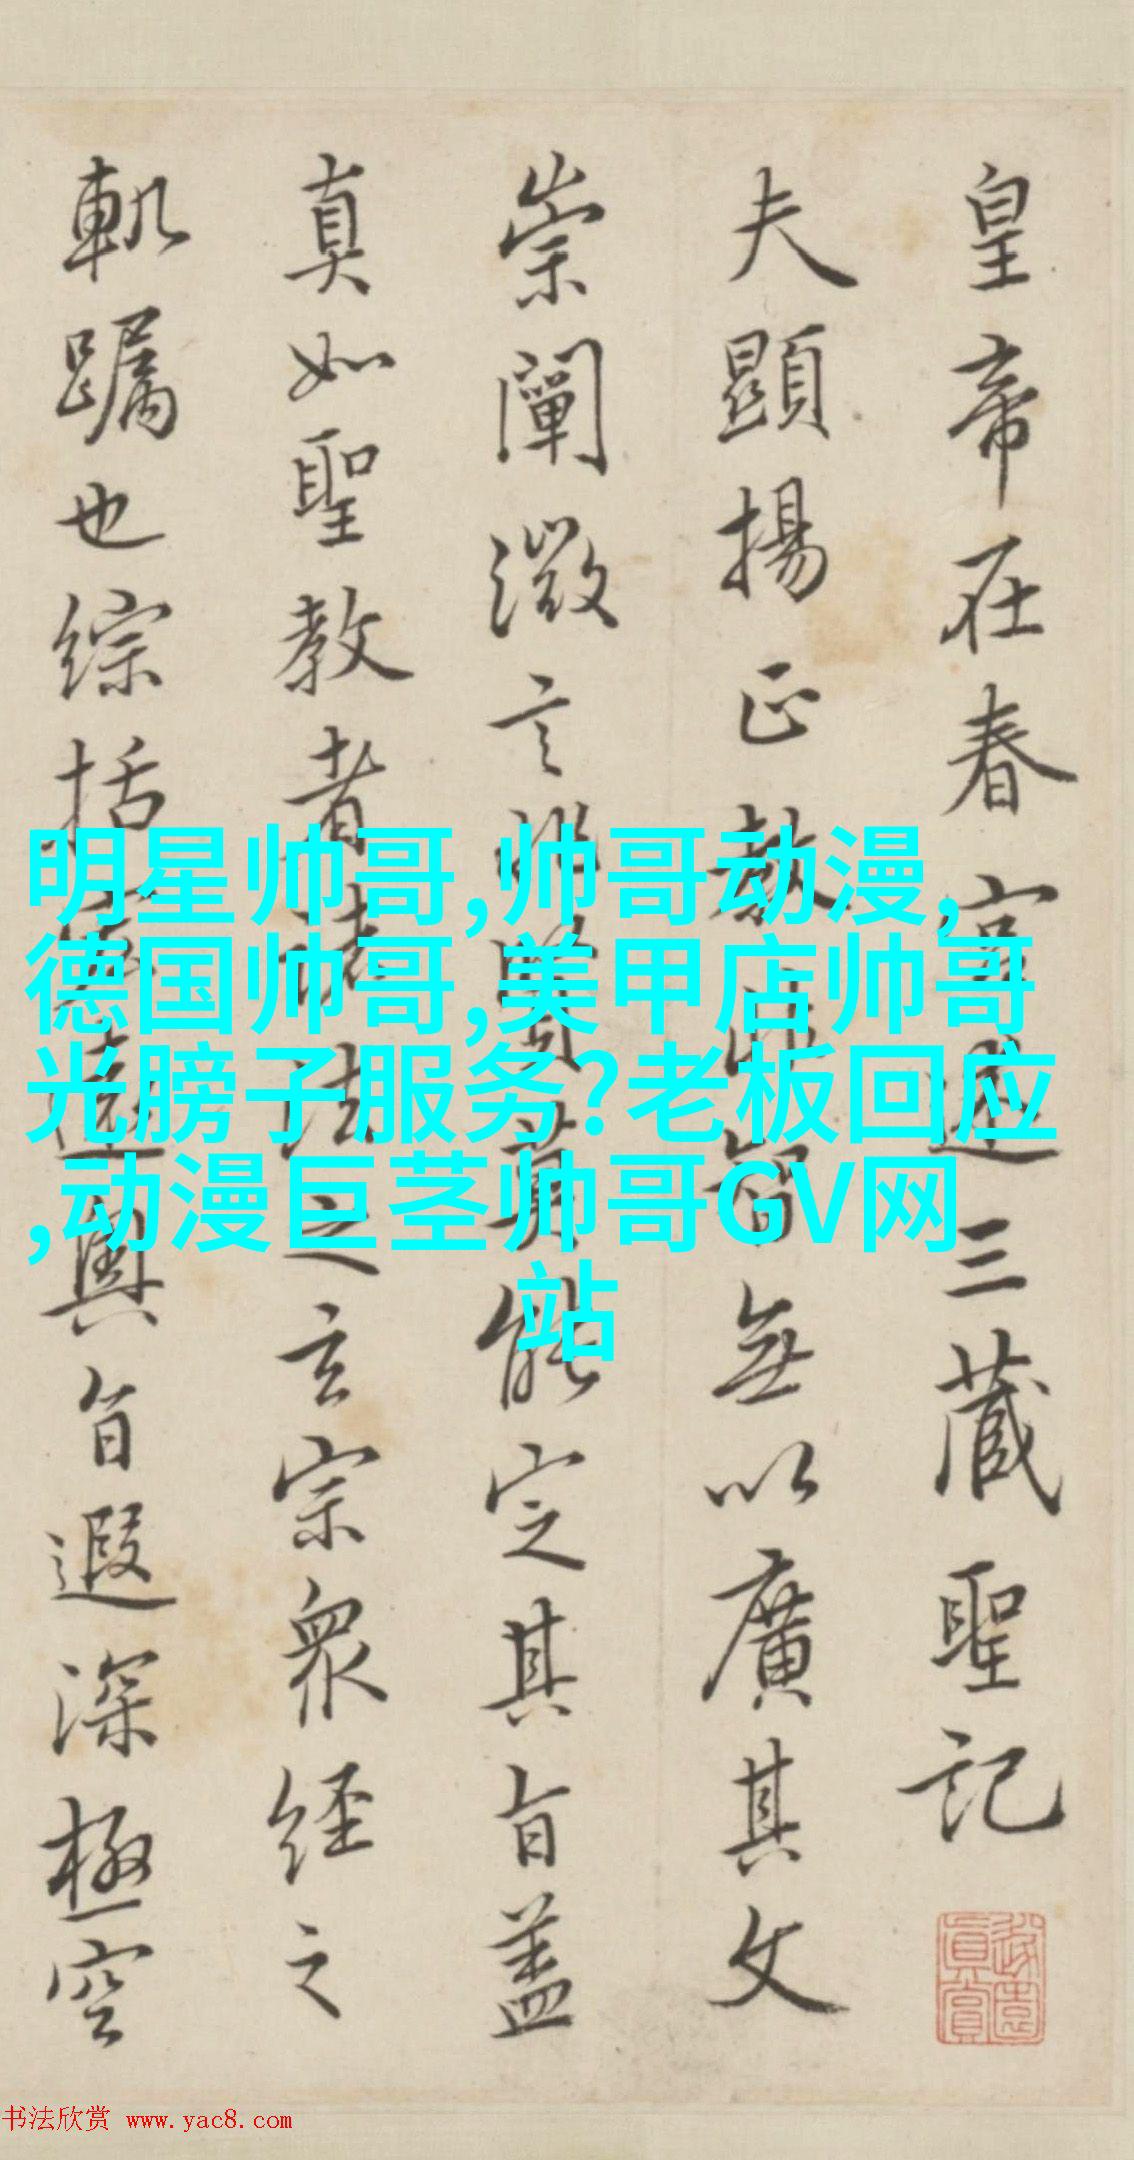 皇帝在春宮述三藏聖記
夫顯揚正教非智無以廣其文
崇闡微言非賢莫能定其旨蓋
真如聖教者諸法之玄宗眾經之
軌躅也綜括宏遠奧旨遐深極空
明星帅哥,帅哥动漫,
德国帅哥,美甲店帅哥
光膀子服务?老板回应
,动漫巨茎帅哥GV网
站
书法欣赏 www.yac8.com